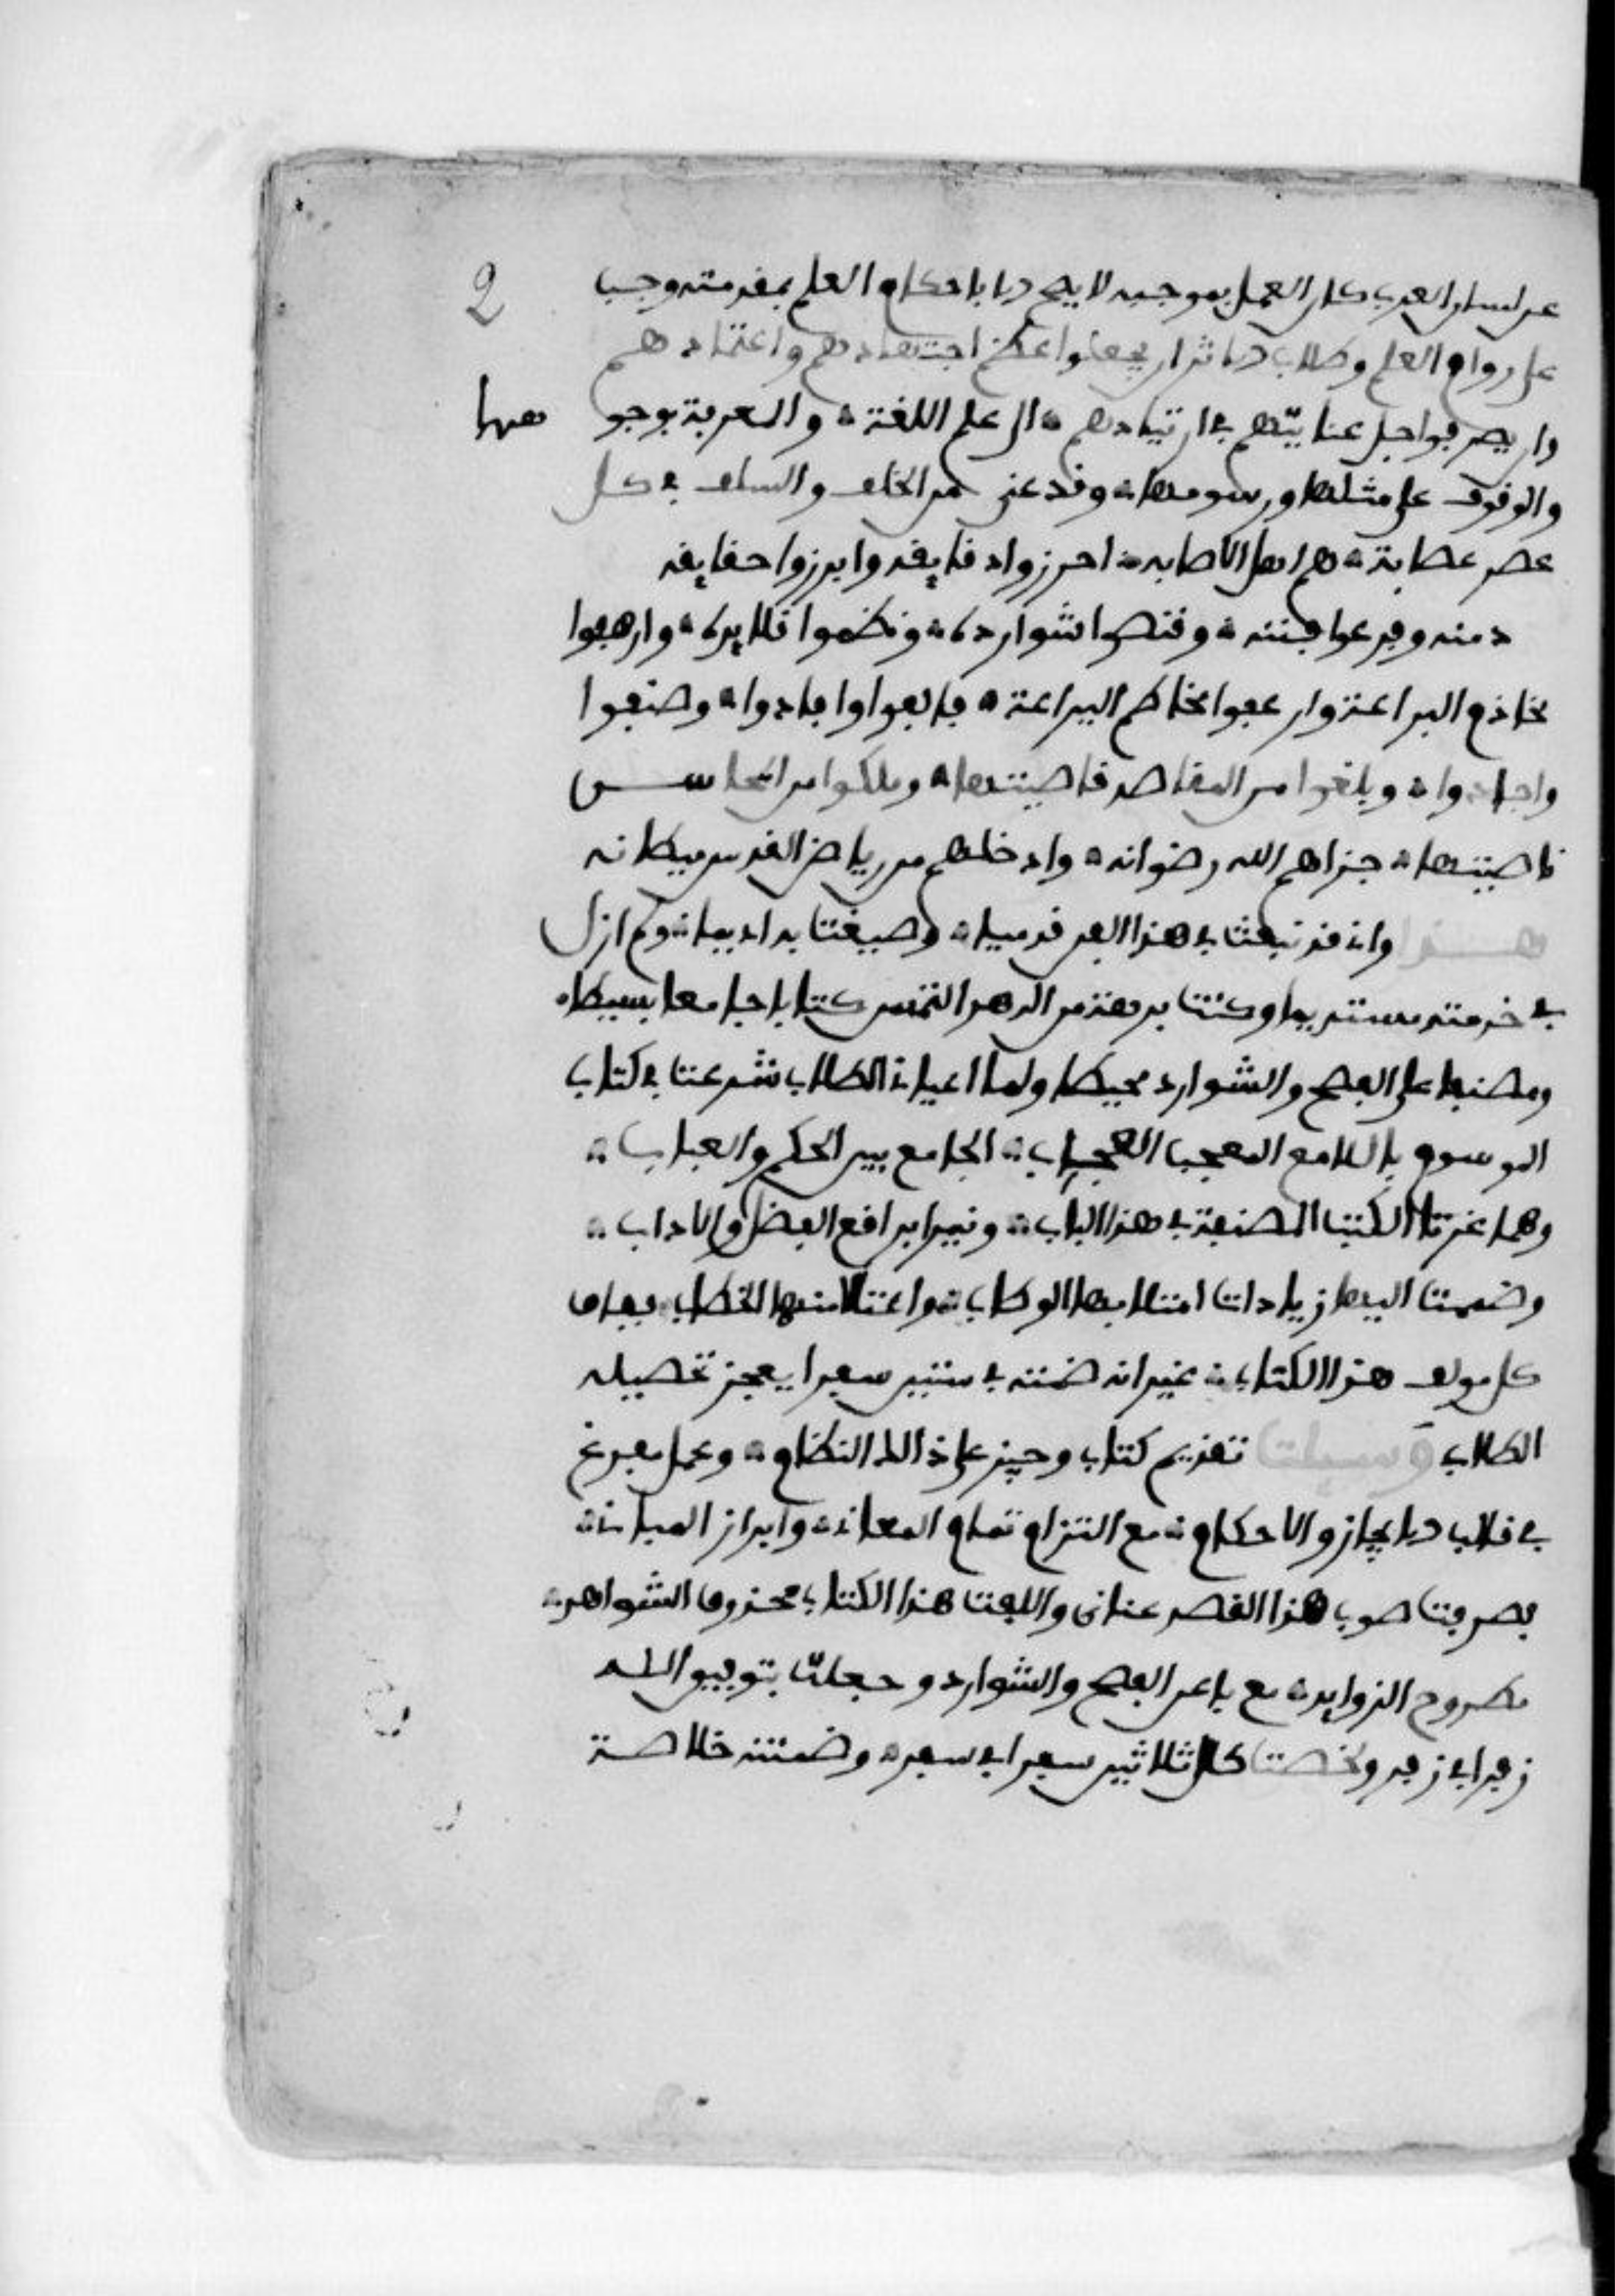 2
عن لسان العرب كان العمل بموجبه لا يصح الا باحكام العلم بمقدمته وجب
على روام العلم وطلاب الاثر ان يجعلوا عظم اجتهادهم واعتمادهم
وان يصرفوا جل عنايتهم في ارتيادهم الى علم اللغة والمعرفة بوجو هها
والوقوف على مثلها ورسومها وقد عني من الخلف والسلف في كل
عصر عصابة هم اهل الاصابه احرزوا دقايقه وابرزوا حقايقه
دمنه وفرعوا قننه وقنصوا شوارده ونظموا قلايده وارهفوا
مخاذم البراعة وارعفوا مخاطم اليراعة فالفوا وافادوا وصنفوا
واجادوا وبلغوا من المقاصد قاصيتها وملكوا من المحاسن
ناصيتها جزاهم الله رضوانه وادخلهم من رياض القدس ميطانه
هذا واني قد نبغت في هذا الفن قديما وصبغت به اديما ولم ازل
في خدمته مستديما وكنت برهة من الدهر التمس كتابا جامعا بسيطا
ومصنفا على الفصح والشوارد محيطا ولما اعياني الطلاب شرعت في كتاب
الموسوم باللامع المعجب العجاب الجامع بين المحكم والعباب
وهما غرتا الكتب المصنفة في هذا الباب ونيرا براقع الفضل والاداب
وضممت اليها زيادات امتلا بها الوطاب واعتلا منها الخطاب ففاق
كل مولف هذا الكتاب غير انه خمنته في ستين سفرا يعجز تحصيله
الطلاب وسيلت تقديم كتاب وجيز على ذالك النظام وعمل مفرغ
في قالب الايجاز والاحكام مع التزام تمام المعاني وابراز المباني
فصرفت صوب هذا القصد عناني والفت هذا الكتاب محذوف الشواهد
مطروح الزوايد مع باعن الفصح والشوارد وجعلت بتوفيق الله
زفرا في زفر ولخصت كل ثلاثين سفرا في سفر وضمنته خلاصة